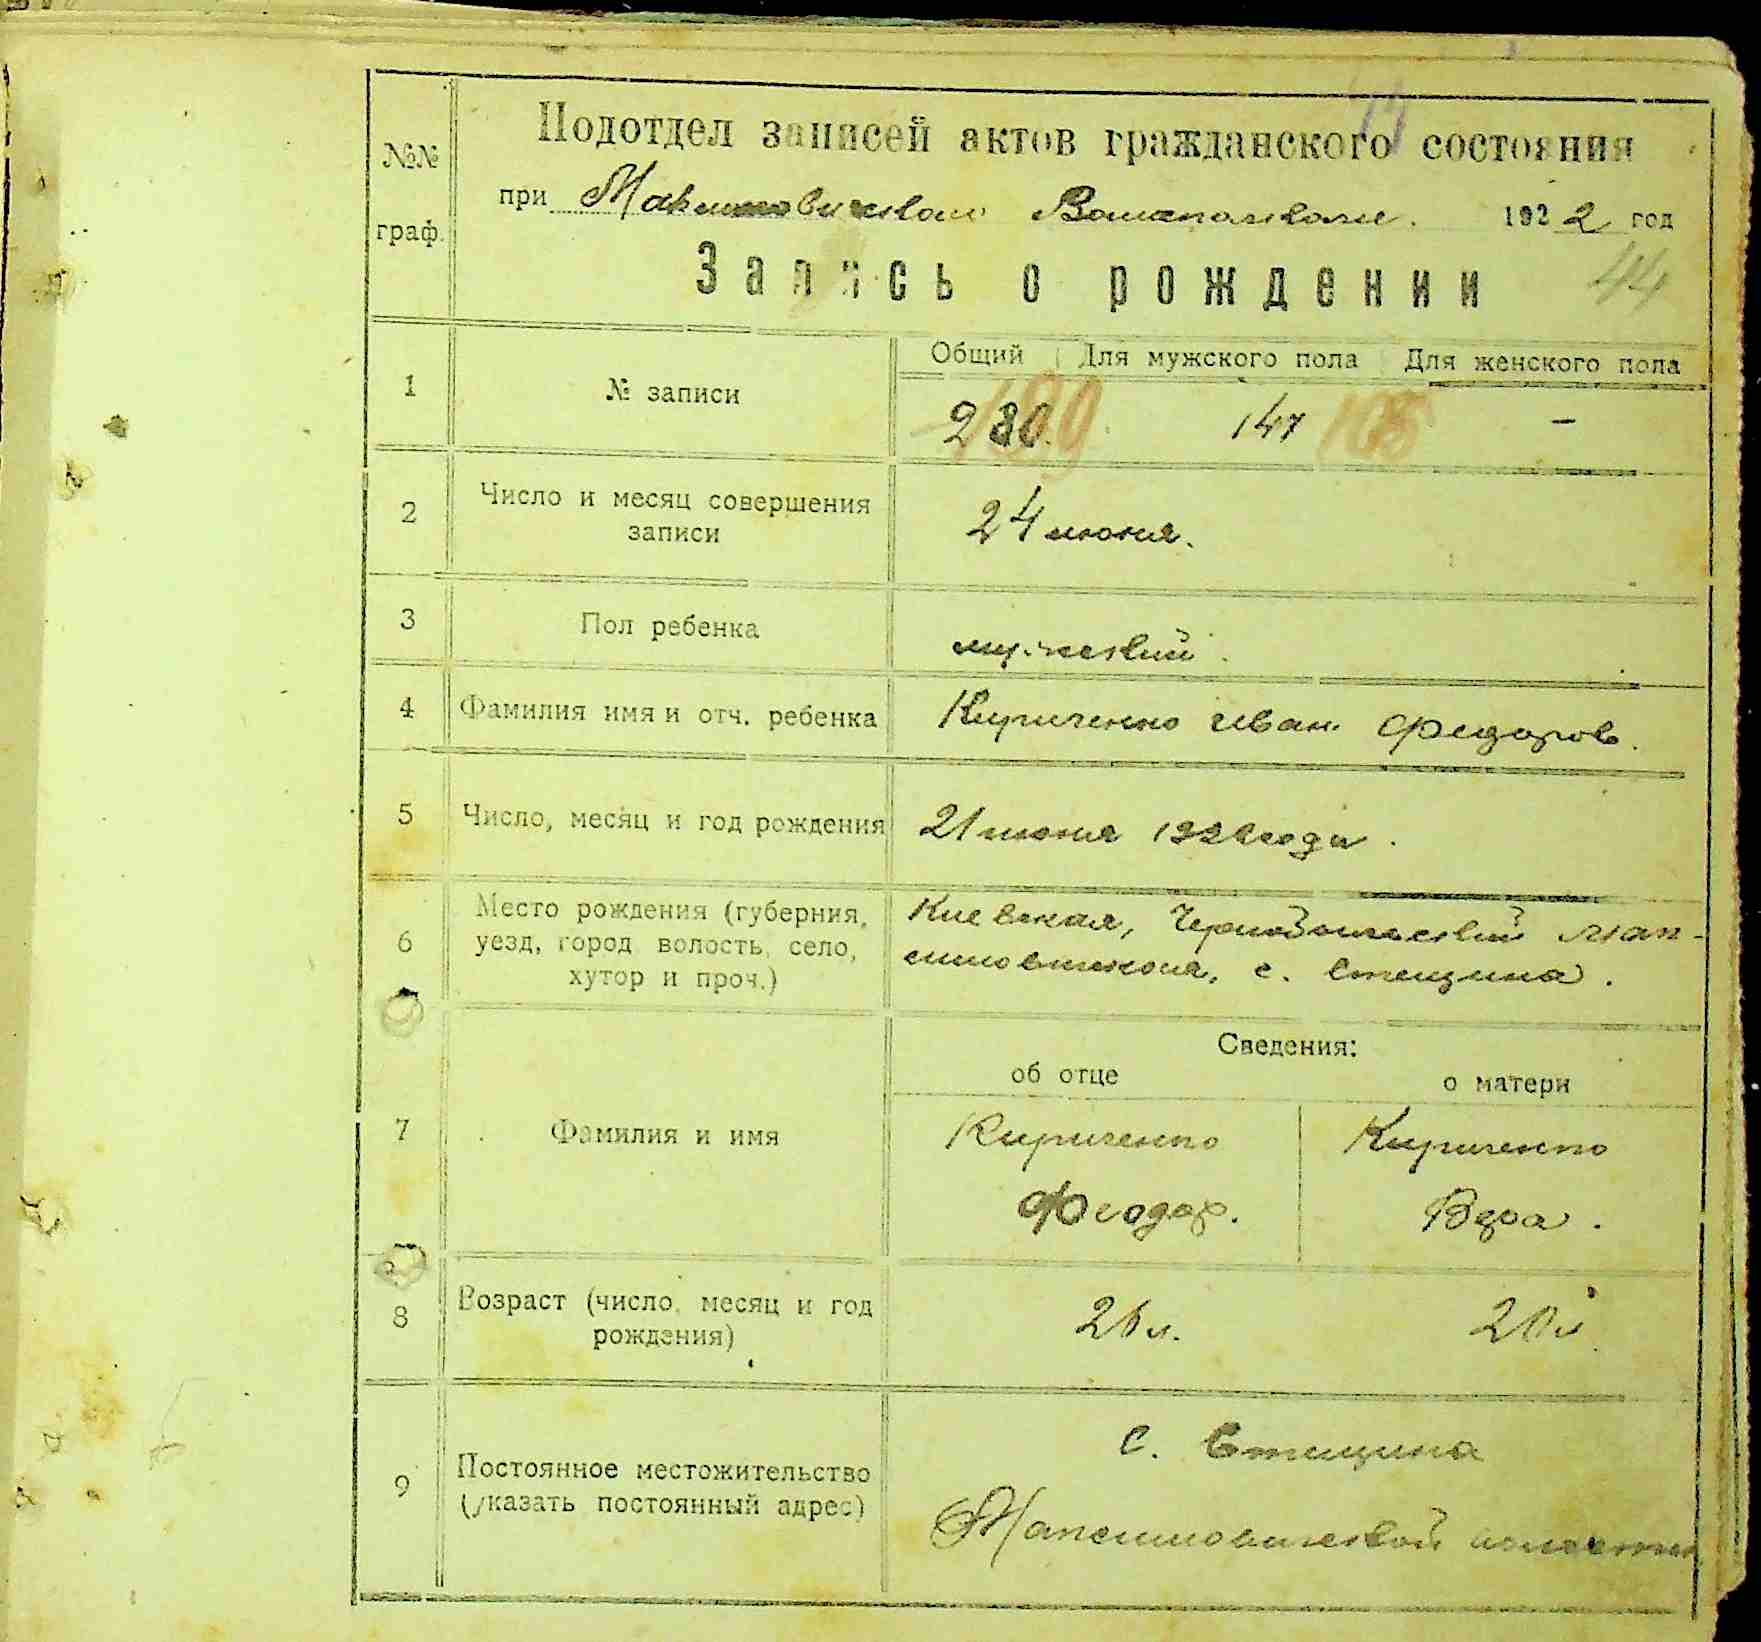 Подотдел записей актов гражданского состояния
№№ граф.
при Максимовичском Волисполкоме. 1922 год
Запись о рождении 44
Общий Для мужского пола Для женского пола
1 № записи 230. 199 147 105 -
2 Число и месяц совершения записи 24 июня.
3 Пол ребенка мужеский.
4 Фамилия имя и отч. ребенка Кириченко Иван Федоров.
5 Число, месяц и год рождения 21 июня 1922 года.
6 Место рождения (губерния, Киевская, Чернобыльский Мак-
уезд, город волость, село, симовичская, с. Стещина.
хутор и проч.)
Сведения:
об отце о матери
7 Фамилия и имя Кириченко Кириченко
Феодор. Вера.
8 Возраст (число, месяц и год 26 л. 20 л
рождения)
с. Стещина
9 Постоянное местожительство
(указать постоянный адрес) Максимовичской волости